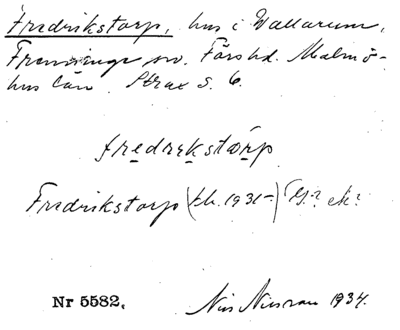 Fredrikstorp, hus i Vallarum,
Frenninge sn. Färs hd. Malmö-
hus län. Strax S. 6.
fredrekstɷrp
Fredrikstorp (kb. 1931-)
Nr 5582. Nils Nilsson 1934.